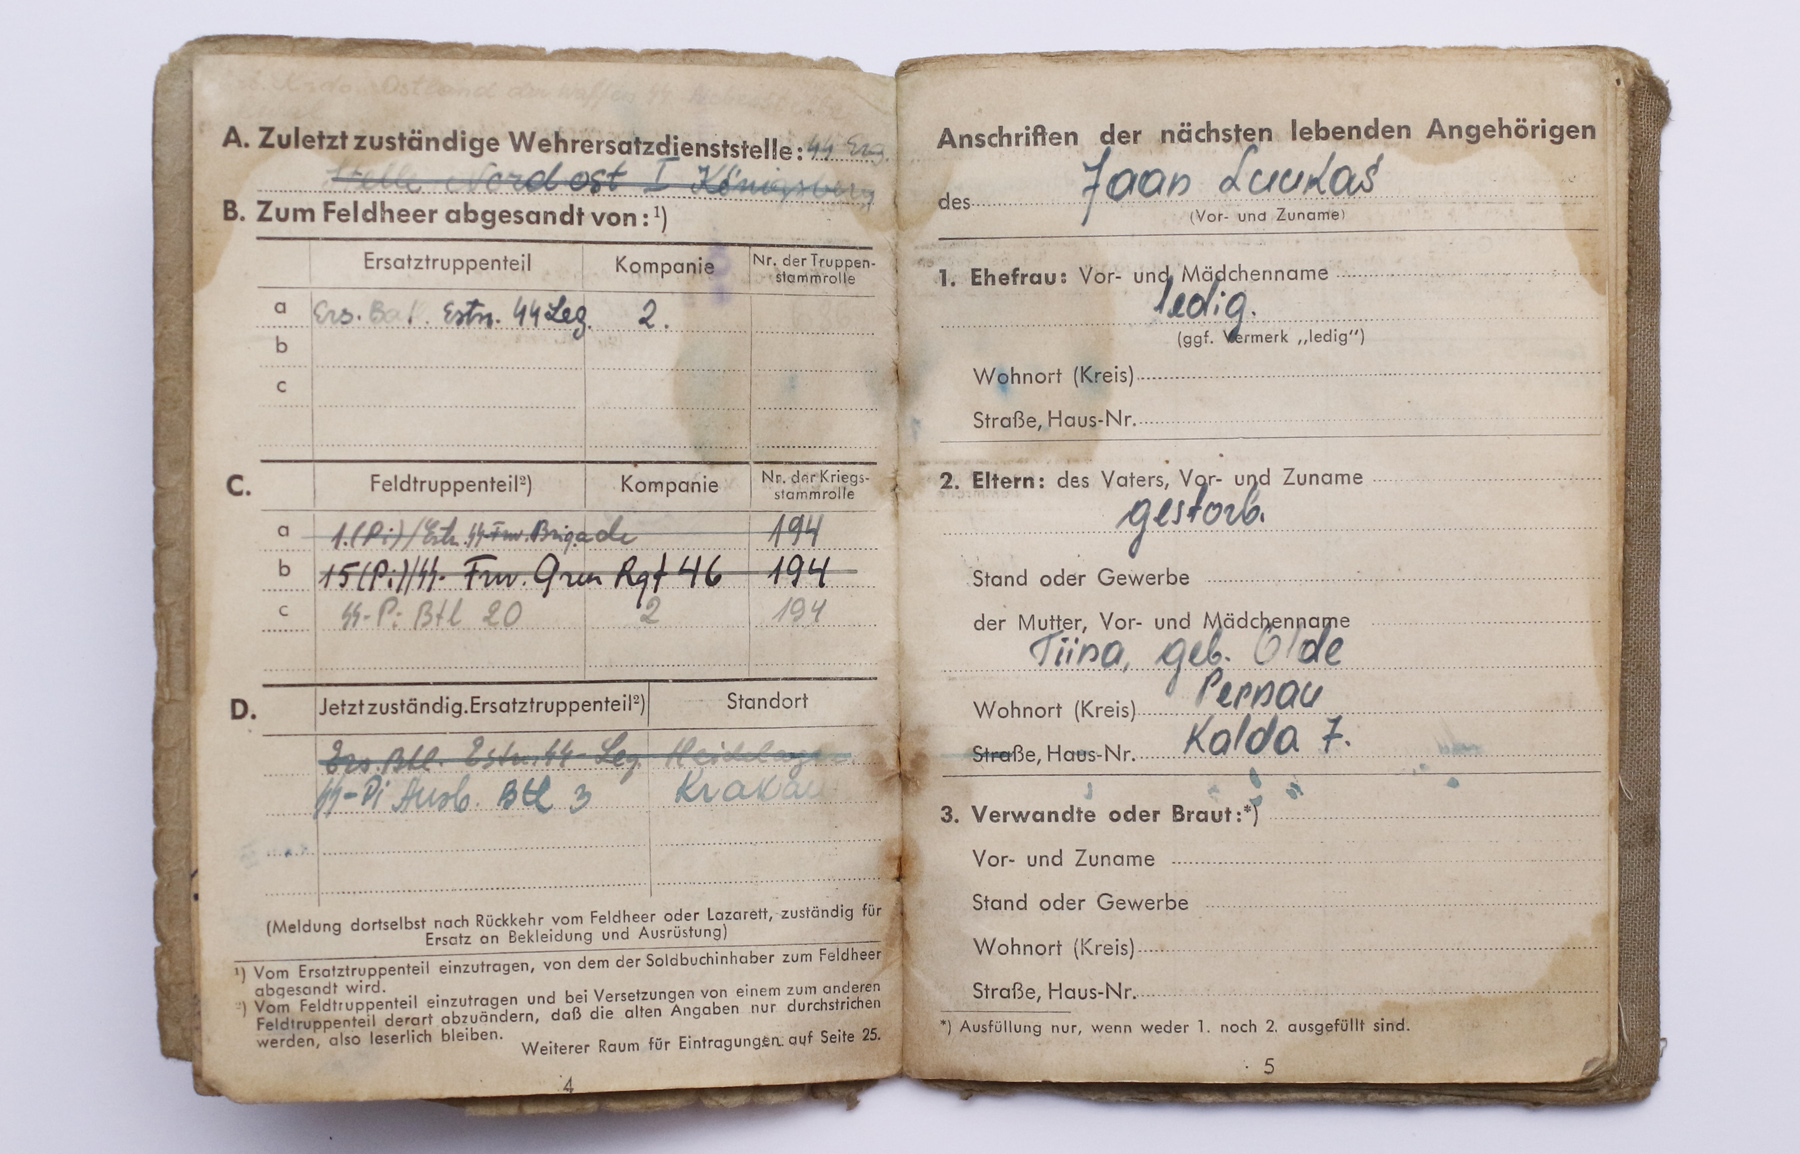 Ostland der Waffen SS
A. Zuletzt zuständige Wehrersatzdienststelle: SS Erg.
stelle Nordost I Königsberg
B. Zum Feldheer abgesandt von:¹)
Ersatztruppenteil Kompanie Nr. der Truppen-
stammrolle
a Ers. Batl. Estn. SS Leg. 2.
b
c
C. Feldtruppenteil²) Kompanie Nr. der Kriegs-
stammrolle
a 1.(Pi)/Estn. SS-Frw. Brigade 194
b 15(Pi)/SS- Frw. Gren Rgt 46 194
c SS-Pi Btl 20 2 194
D. Jetzt zuständig. Ersatztruppenteil²) Standort
Ers. Btl. Estn. SS-Leg. Heidelager
SS-Pi Ausb. Btl 3 Krakau
(Meldung dortselbst nach Rückkehr vom Feldheer oder Lazarett, zuständig für
Ersatz an Bekleidung und Ausrüstung)
¹) Vom Ersatztruppenteil einzutragen, von dem der Soldbuchinhaber zum Feldheer
abgesandt wird.
²) Vom Feldtruppenteil einzutragen und bei Versetzungen von einem zum anderen
Feldtruppenteil derart abzuändern, daß die alten Angaben nur durchstrichen
werden, also leserlich bleiben.
Weiterer Raum für Eintragungen auf Seite 25.
4
Anschriften der nächsten lebenden Angehörigen
des Jaan Luukas
(Vor- und Zuname)
1. Ehefrau: Vor- und Mädchenname
ledig.
(ggf. Vermerk „ledig“)
Wohnort (Kreis)
Straße, Haus-Nr.
2. Eltern: des Vaters, Vor- und Zuname
gestorb.
Stand oder Gewerbe
der Mutter, Vor- und Mädchenname
Tiina, geb. Olde
Wohnort (Kreis) Pernau
Straße, Haus-Nr. Kalda 7.
3. Verwandte oder Braut:*)
Vor- und Zuname
Stand oder Gewerbe
Wohnort (Kreis)
Straße, Haus-Nr.
*) Ausfüllung nur, wenn weder 1. noch 2. ausgefüllt sind.
5